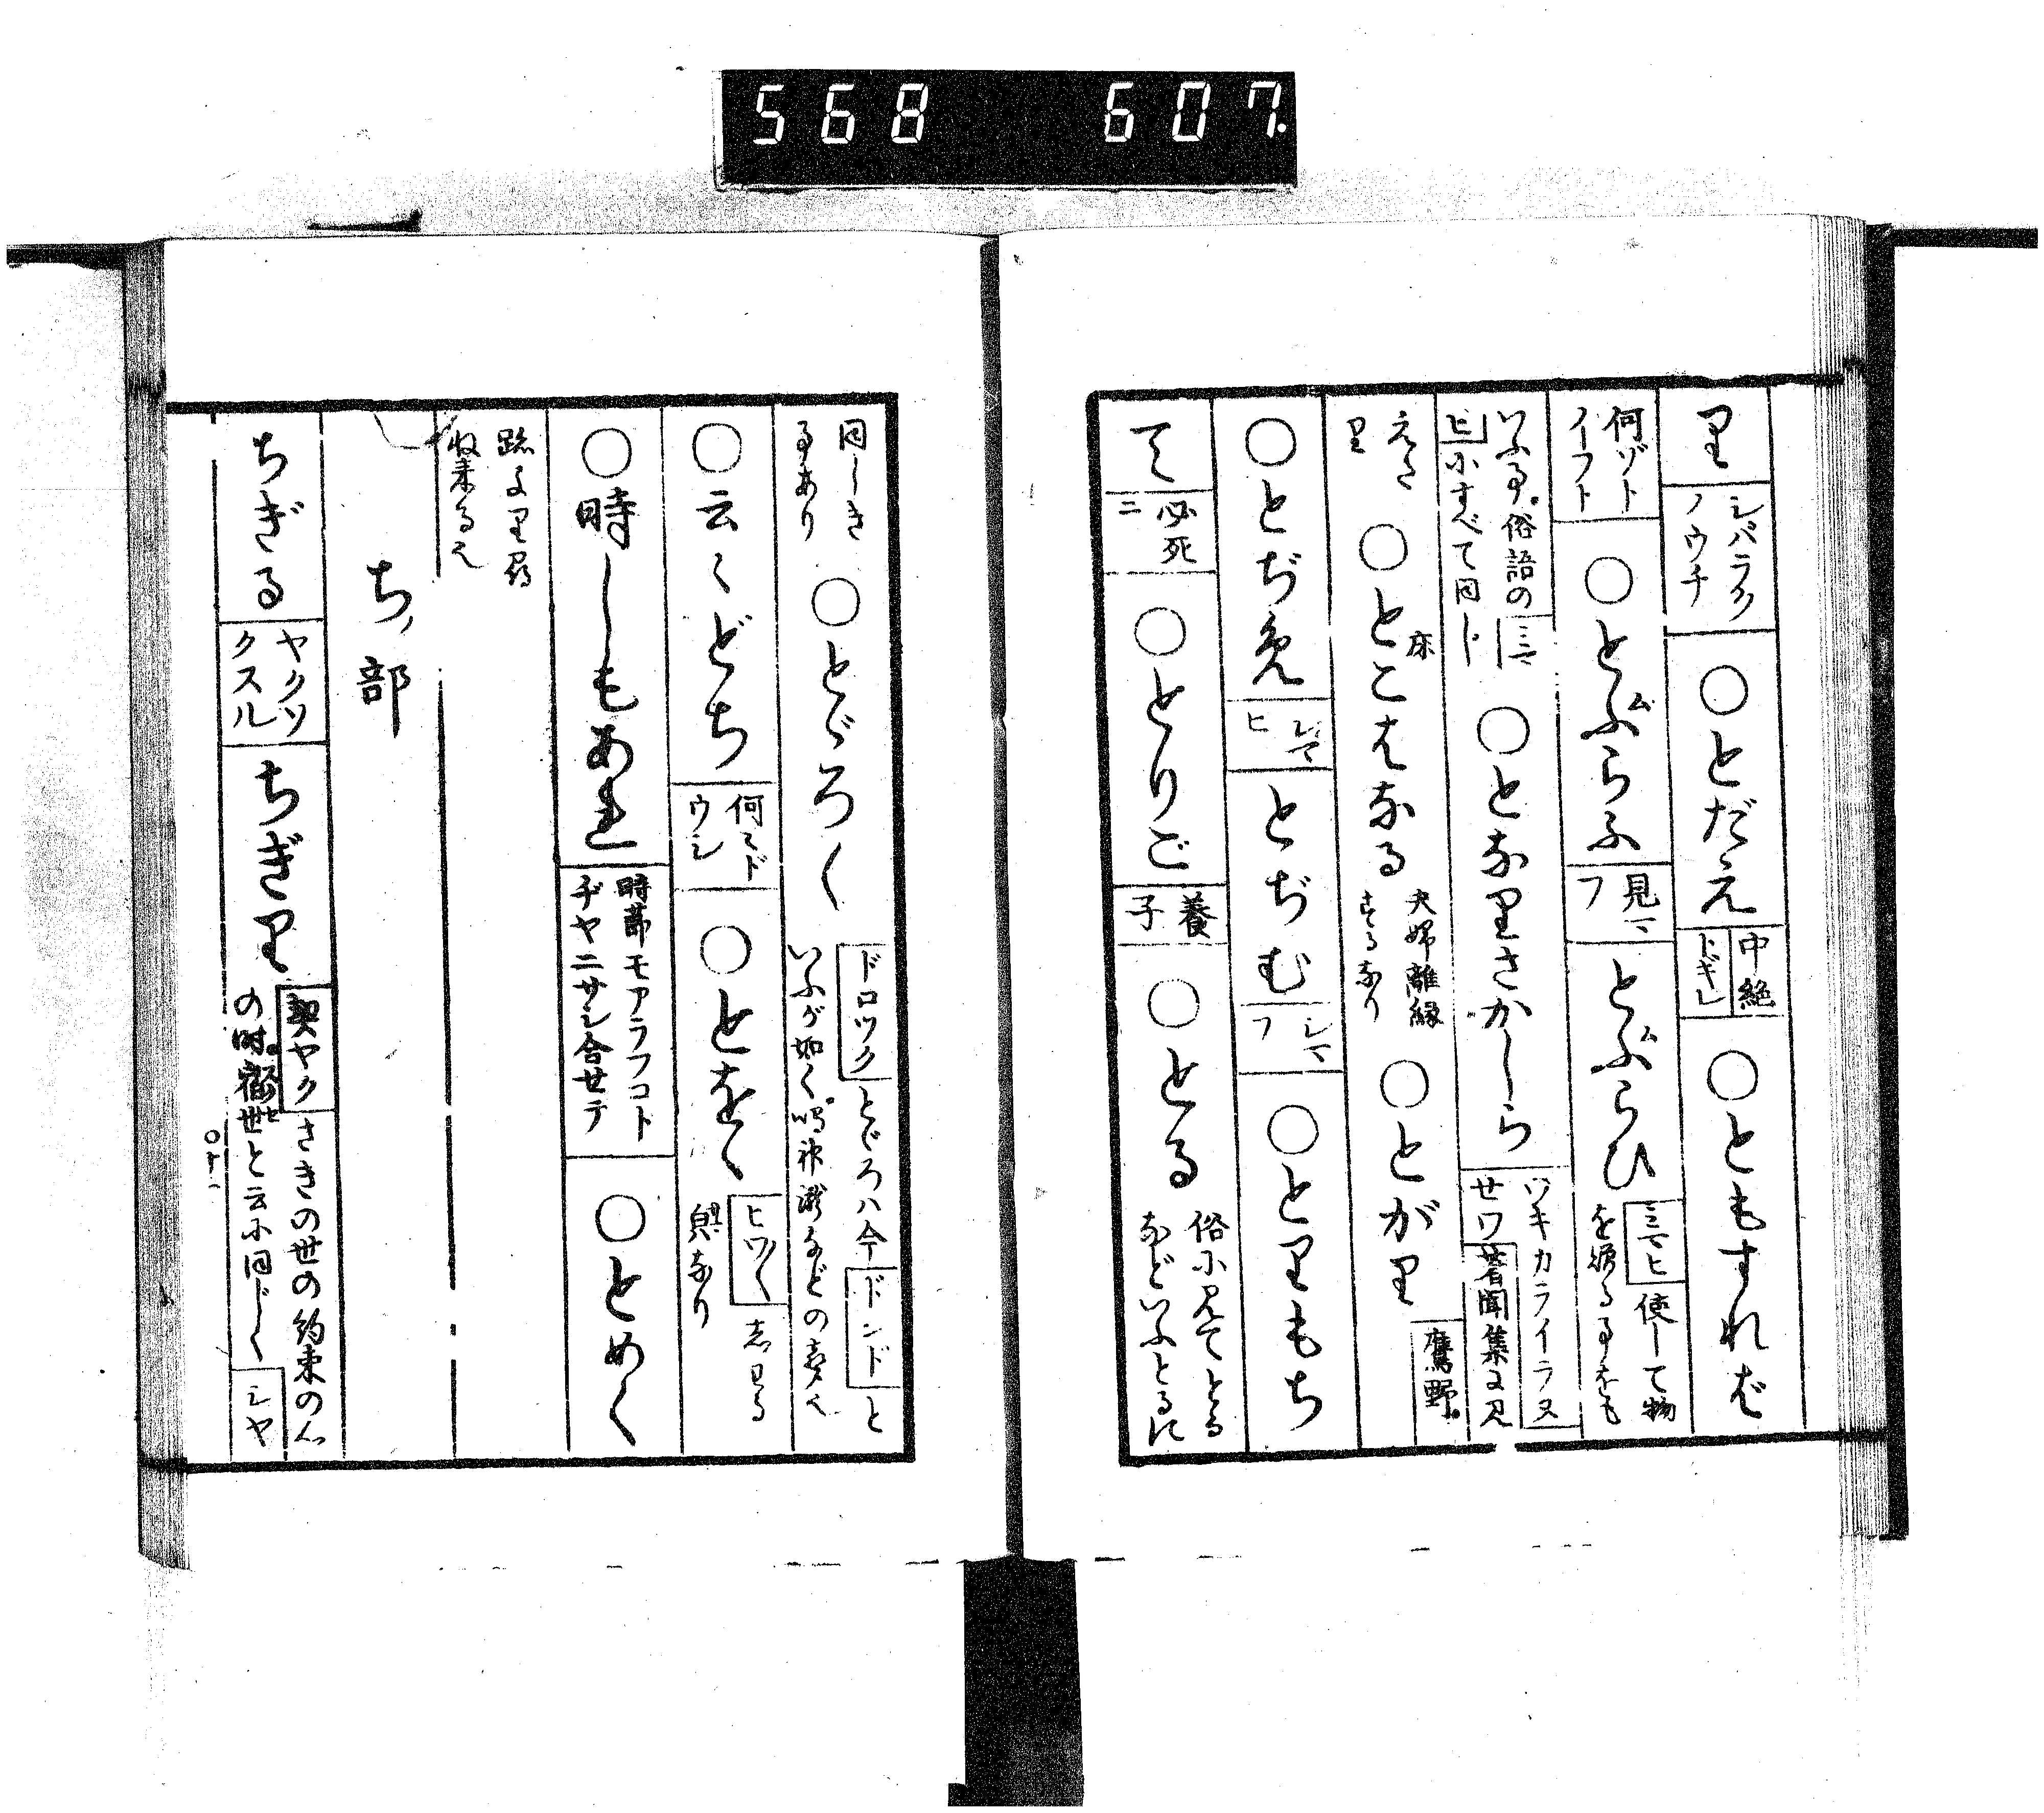 568 607.
里 シバラク ノウチ ○とだえ 中絶 トギレ ○ともすれば
何ゾト イーフト ○とぶらふ 見マ フ とぶらひ ミマヒ 使して物 を贈る事をも
いふ事。俗語の ミマ ヒ にすべて同じ ○となりさかしら ワキカライラヌ セワ 著聞集に見
えた り ○とこはなる 床 夫婦離縁 するなり ○とがり 鷹野。
○とぢ免 シマ ヒ とぢむ シマ フ ○とりもち
て 必死 ニ ○とりご 養 子 ○とる 俗に見てとる などいふとるに
同じき 事あり ○とゞろく ドロツク とゞろハ今 ドンド と いふが如く鳴神瀧などの
○云〻どち 何〻ド ウシ ○とをく ヒワ〳〵 しわる 貌なり
○時しもあれ 時節モアラフコト ヂヤニサシ合セテ ○とめく
跡より尋 ね来る也
ち、部
ちぎる ヤクソ クスル ちぎり 契ヤク さきの世の約束の心 の時。宿世と云に同じく シヤ